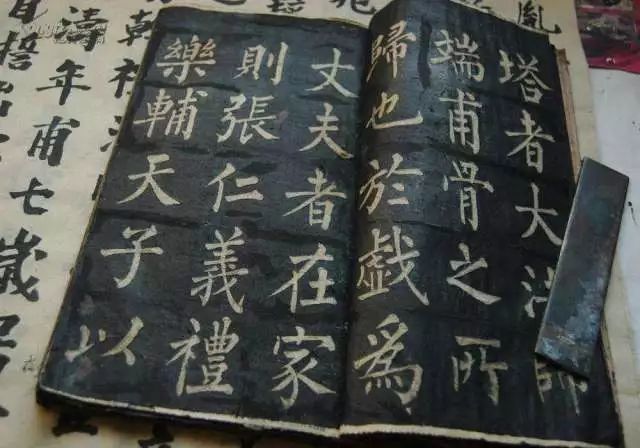 塔者大法師
端甫骨之所
歸也於戲為
丈夫者在家
則張仁義禮
樂輔天子以
濤年甫七歲